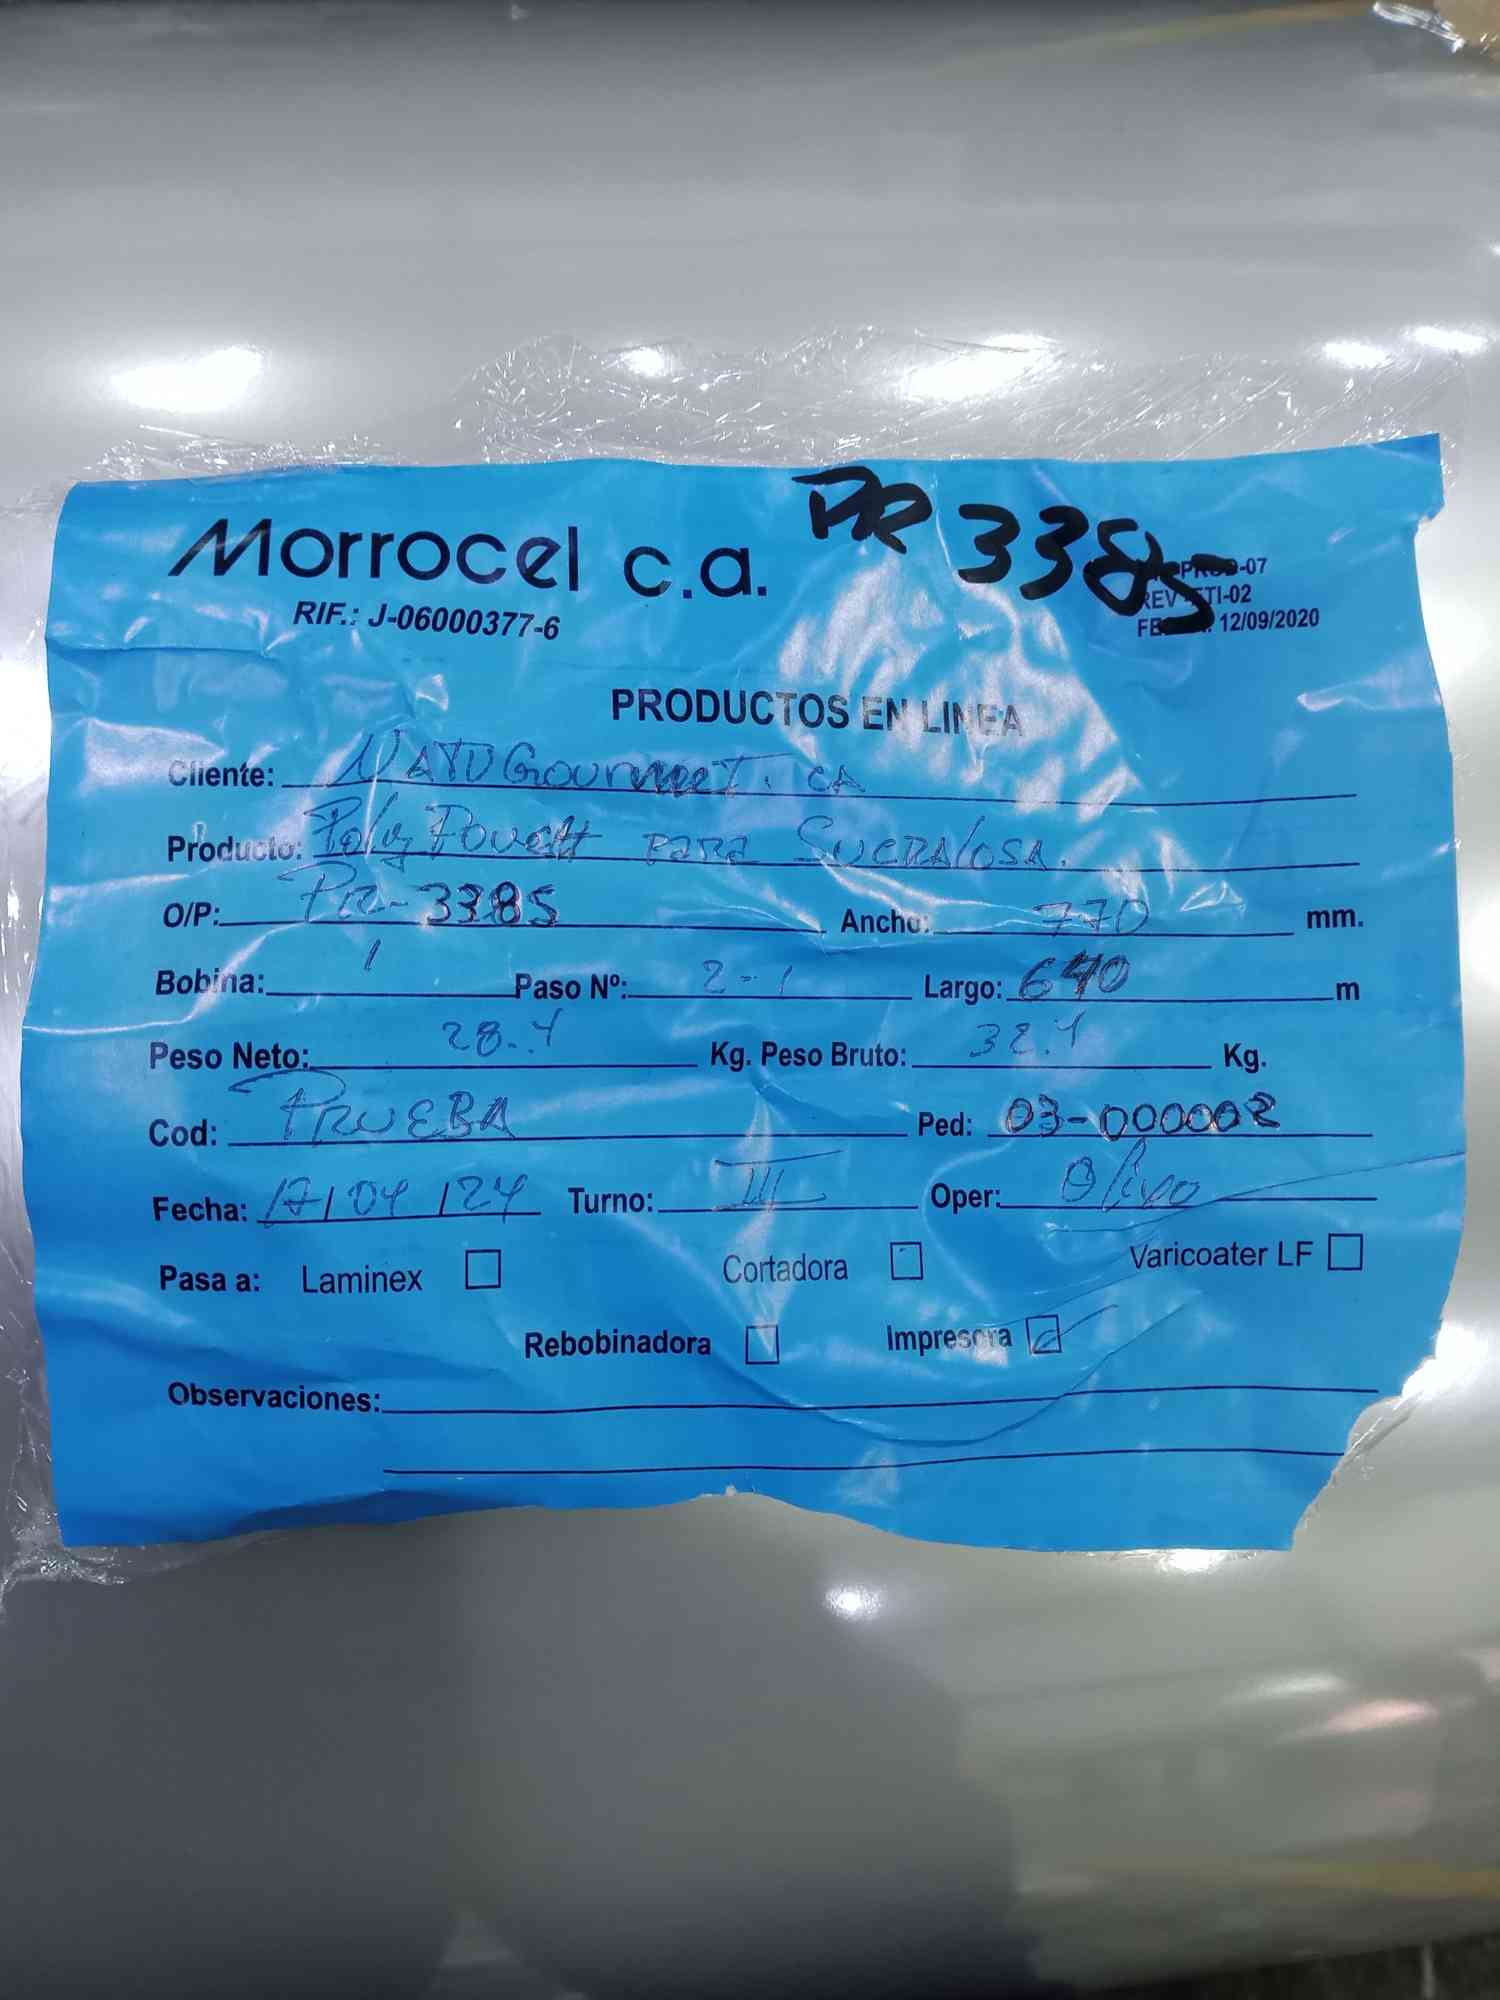 Morrocel c.a.
PR 3385
RIF.: J-06000377-6
-PROD-07
REV TI-02
12/09/2020
PRODUCTOS EN LINEA
Cliente: NATUGourmet. CA
Producto: Poly Pouch para Sucralosa.
O/P: PR-3385 Ancho: 770 mm.
Bobina: 1 Paso Nº: 2-1 Largo: 640 m
Peso Neto: 28.4 Kg. Peso Bruto: 32.4 Kg.
Cod: PRUEBA Ped: 03-000002
Fecha: 17/04/24 Turno: III Oper: Olivo
Pasa a: Laminex Cortadora Varicoater LF
Rebobinadora Impresora
Observaciones: